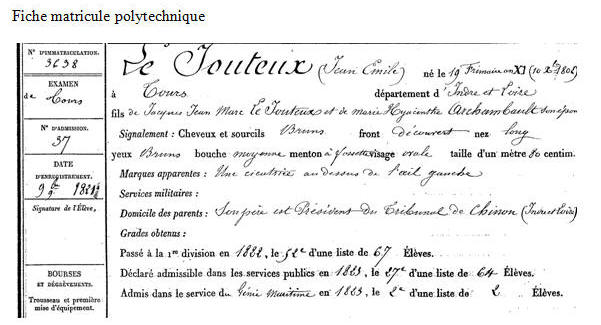 Fiche matricule polytechnique
N° D'IMMATRICULATION.
3638
EXAMEN
de Tours
N° D'ADMISSION.
37
DATE
D'ENREGISTREMENT.
9 9bre 1821
Signature de l'Élève,
BOURSES
ET DÉGRÈVEMENTS.
Trousseau et première
mise d'équipement.
Le Jouteux (Jean Émile) né le 19 Frimaire an XI (10 Xbre 1802)
à Tours département d'Indre et Loire
fils de Jacques Jean Marc Le Jouteux et de Marie Hyacinthe Archambault son épouse
Signalement : Cheveux et sourcils Bruns front découvert nez long
yeux Bruns bouche moyenne menton à fossette visage ovale taille d'un mètre 80 centim.
Marques apparentes : Une cicatrice au dessous de l'œil gauche
Services militaires :
Domicile des parents : Son père est Président du Tribunal de Chinon (Indre et Loire)
Grades obtenus :
Passé à la 1re division en 1822, le 52e d'une liste de 67 Élèves.
Déclaré admissible dans les services publics en 1823, le 27e d'une liste de 64 Élèves.
Admis dans le service du Génie Maritime en 1823, le 2e d'une liste de 2 Élèves.